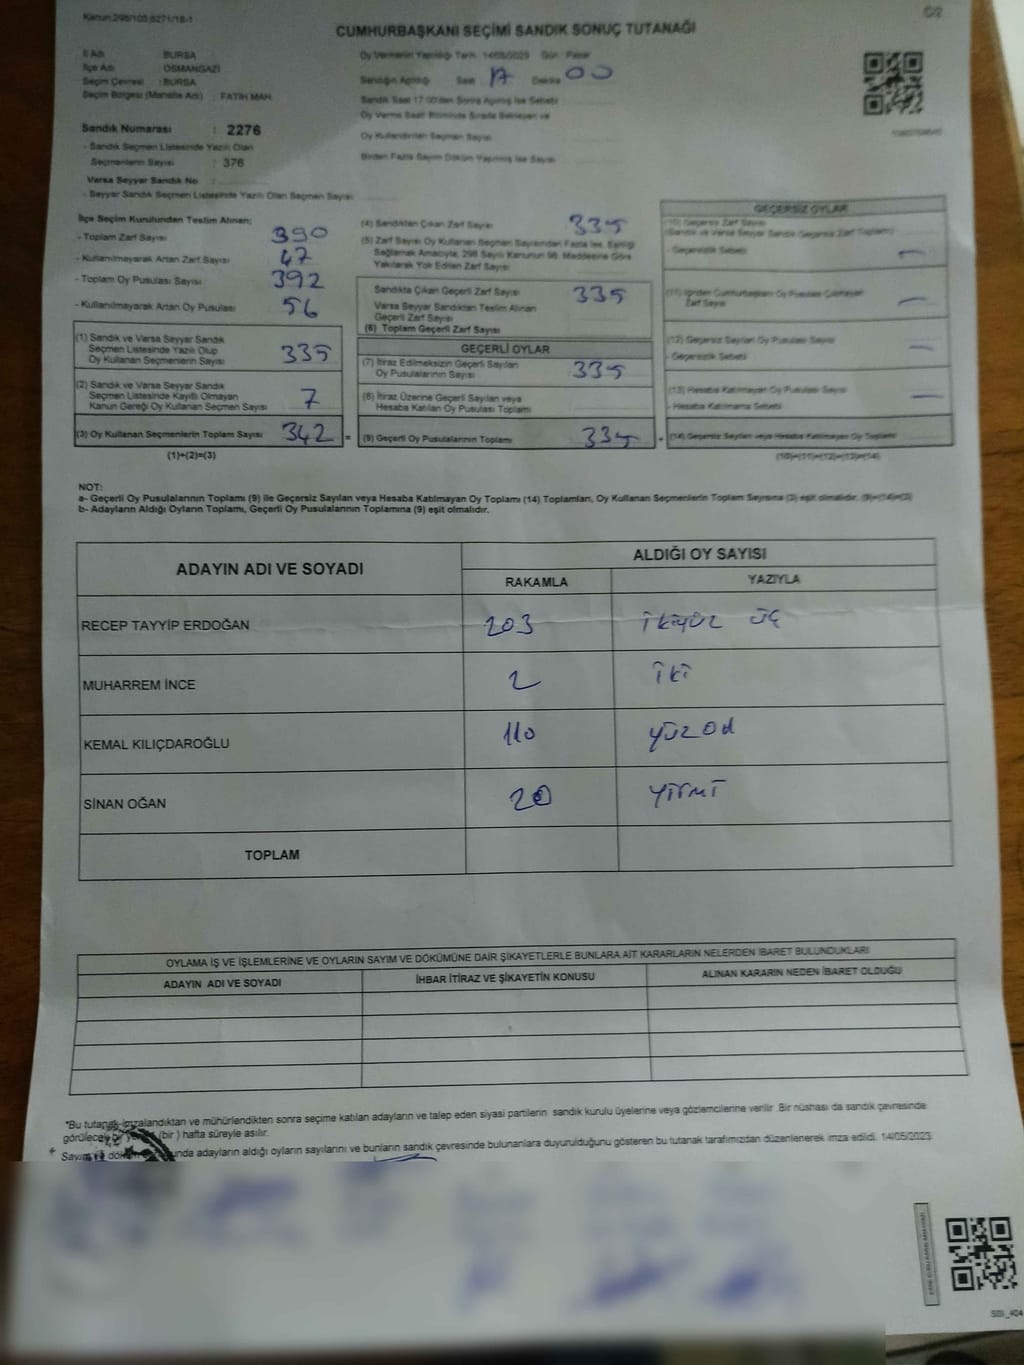 Kanun:298/105,6271/18-1
C/2
CUMHURBAŞKANI SEÇİMİ SANDIK SONUÇ TUTANAĞI
İl Adı : BURSA
İlçe Adı : OSMANGAZİ
Seçim Çevresi : BURSA
Seçim Bölgesi (Mahalle Adı) : FATİH MAH.
Oy Vermenin Yapıldığı Tarih: 14/05/2023 Gün: Pazar
Sandığın Açıldığı Saat 17 Dakika 00
Sandık Saat 17:00'den Sonra Açılmış İse Sebebi
Oy Verme Saati Bitiminde Sırada Bekleyen ve
Oy Kullandırılan Seçmen Sayısı
Birden Fazla Sayım Döküm Yapılmış İse Sayısı
Sandık Numarası : 2276
- Sandık Seçmen Listesinde Yazılı Olan
Seçmenlerin Sayısı : 376
Varsa Seyyar Sandık No :
- Seyyar Sandık Seçmen Listesinde Yazılı Olan Seçmen Sayısı
İlçe Seçim Kurulundan Teslim Alınan:
- Toplam Zarf Sayısı 390
- Kullanılmayarak Artan Zarf Sayısı 47
- Toplam Oy Pusulası Sayısı 392
- Kullanılmayarak Artan Oy Pusulası 56
(1) Sandık ve Varsa Seyyar Sandık
Seçmen Listesinde Yazılı Olup
Oy Kullanan Seçmenlerin Sayısı 335
(2) Sandık ve Varsa Seyyar Sandık
Seçmen Listesinde Kayıtlı Olmayan
Kanun Gereği Oy Kullanan Seçmen Sayısı 7
(3) Oy Kullanan Seçmenlerin Toplam Sayısı 342 =
(1)+(2)=(3)
(4) Sandıktan Çıkan Zarf Sayısı 335
(5) Zarf Sayısı Oy Kullanan Seçmen Sayısından Fazla İse, Eşitliği
Sağlamak Amacıyla, 298 Sayılı Kanunun 98. Maddesine Göre
Yakılarak Yok Edilen Zarf Sayısı
Sandıkta Çıkan Geçerli Zarf Sayısı 335
Varsa Seyyar Sandıktan Teslim Alınan
Geçerli Zarf Sayısı
(6) Toplam Geçerli Zarf Sayısı
GEÇERLİ OYLAR
(7) İtiraz Edilmeksizin Geçerli Sayılan
Oy Pusulalarının Sayısı 335
(8) İtiraz Üzerine Geçerli Sayılan veya
Hesaba Katılan Oy Pusulası Toplamı
(9) Geçerli Oy Pusulalarının Toplamı 335 +
GEÇERSİZ OYLAR
(10) Geçersiz Zarf Sayısı
(Sandık ve Varsa Seyyar Sandık Geçersiz Zarf Toplamı)
- Geçersizlik Sebebi
(11) İçinden Cumhurbaşkanı Oy Pusulası Çıkmayan
Zarf Sayısı
(12) Geçersiz Sayılan Oy Pusulası Sayısı
- Geçersizlik Sebebi
(13) Hesaba Katılmayan Oy Pusulası Sayısı
- Hesaba Katılmama Sebebi
(14) Geçersiz Sayılan veya Hesaba Katılmayan Oy Toplamı
(10)+(11)+(12)+(13)=(14)
NOT:
a- Geçerli Oy Pusulalarının Toplamı (9) ile Geçersiz Sayılan veya Hesaba Katılmayan Oy Toplamı (14) Toplamları, Oy Kullanan Seçmenlerin Toplam Sayısına (3) eşit olmalıdır. (9)+(14)=(3)
b- Adayların Aldığı Oyların Toplamı, Geçerli Oy Pusulalarının Toplamına (9) eşit olmalıdır.
ADAYIN ADI VE SOYADI
ALDIĞI OY SAYISI
RAKAMLA YAZIYLA
RECEP TAYYİP ERDOĞAN 203 ikiyüz üç
MUHARREM İNCE 2 iki
KEMAL KILIÇDAROĞLU 110 yüzon
SİNAN OĞAN 20 yirmi
TOPLAM
OYLAMA İŞ VE İŞLEMLERİNE VE OYLARIN SAYIM VE DÖKÜMÜNE DAİR ŞİKAYETLERLE BUNLARA AİT KARARLARIN NELERDEN İBARET BULUNDUKLARI
ADAYIN ADI VE SOYADI İHBAR İTİRAZ VE ŞİKAYETİN KONUSU ALINAN KARARIN NEDEN İBARET OLDUĞU
*Bu tutanak imzalandıktan ve mühürlendikten sonra seçime katılan adayların ve talep eden siyasi partilerin sandık kurulu üyelerine veya gözlemcilerine verilir. Bir nüshası da sandık çevresinde
görülecek bir yere (bir) hafta süreyle asılır.
* Sayım dökümü sonunda adayların aldığı oyların sayılarını ve bunların sandık çevresinde bulunanlara duyurulduğunu gösteren bu tutanak tarafımızdan düzenlenerek imza edildi. 14/05/2023